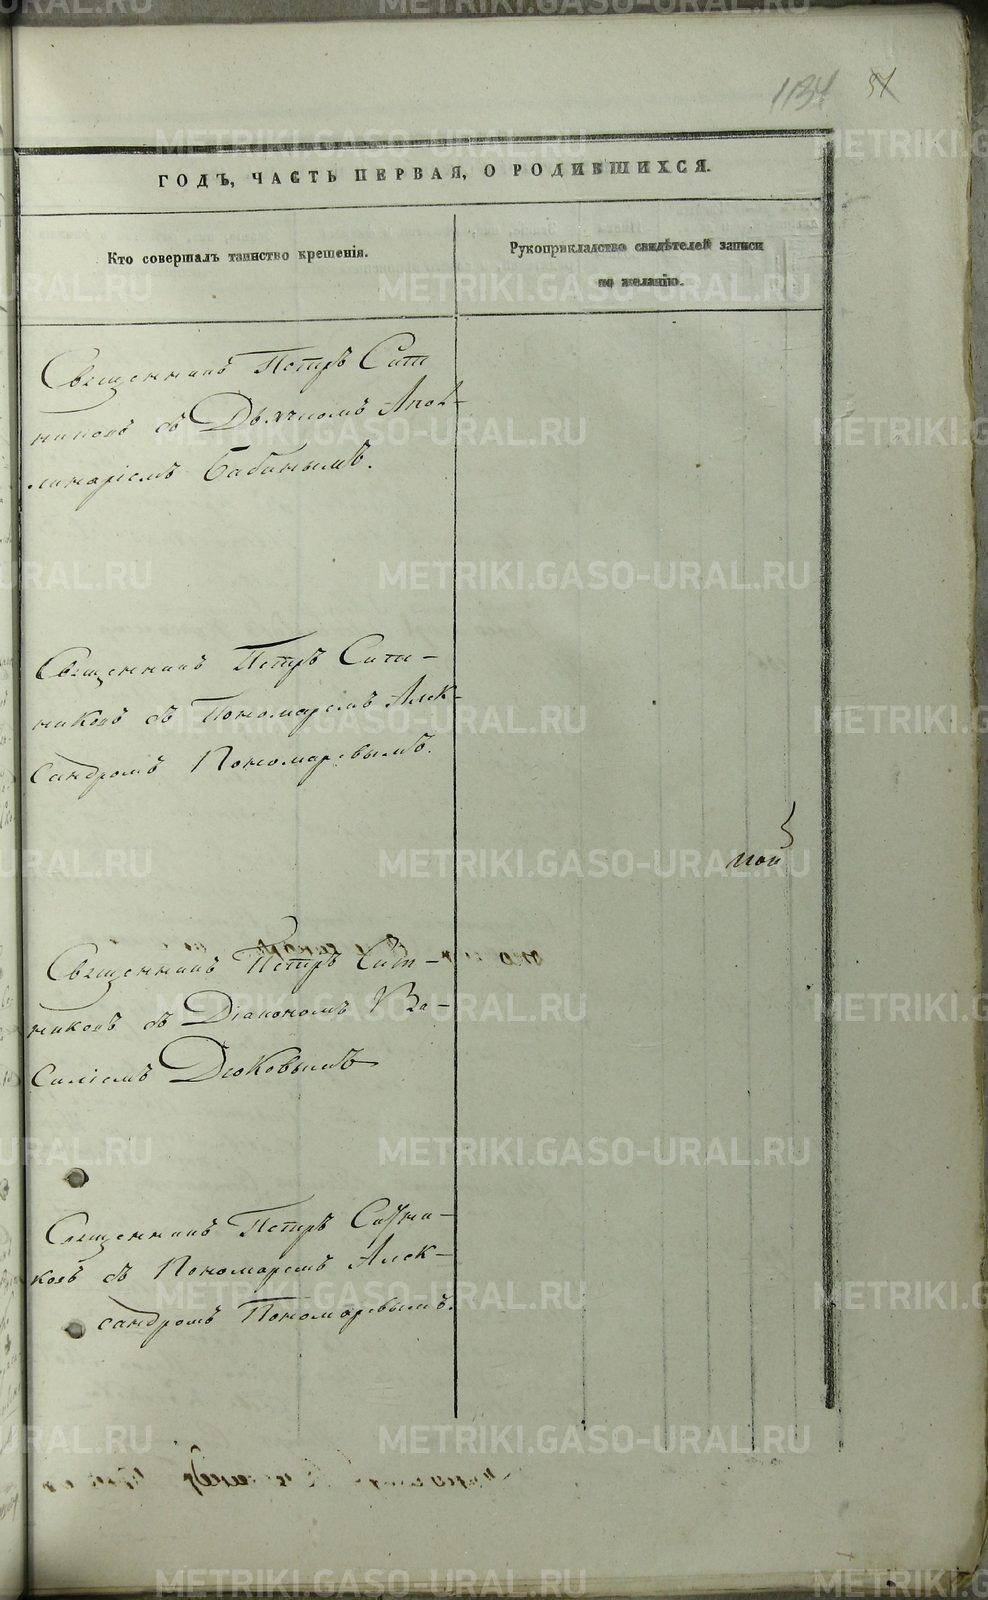 1134 51
ГОДЪ, ЧАСТЬ ПЕРВАЯ, О РОДИВШИХСЯ.
Кто совершалъ таинство крещенія.
Рукоприкладство свидѣтелей записи
по желанію.
Священникъ Петръ Сит
никовъ съ Дьячкомъ Апол-
линаріемъ Бабинымъ.
Священникъ Петръ Сит-
никовъ съ Пономаремъ Алек-
сандромъ Пономаревымъ.
Священникъ Петръ Сит-
никовъ съ Діакономъ Ва-
силіемъ Дюковымъ
Священникъ Петръ Ситни-
ковъ съ Пономаремъ Алек-
сандромъ Пономаревымъ.
METRIKI.GASO-URAL.RU